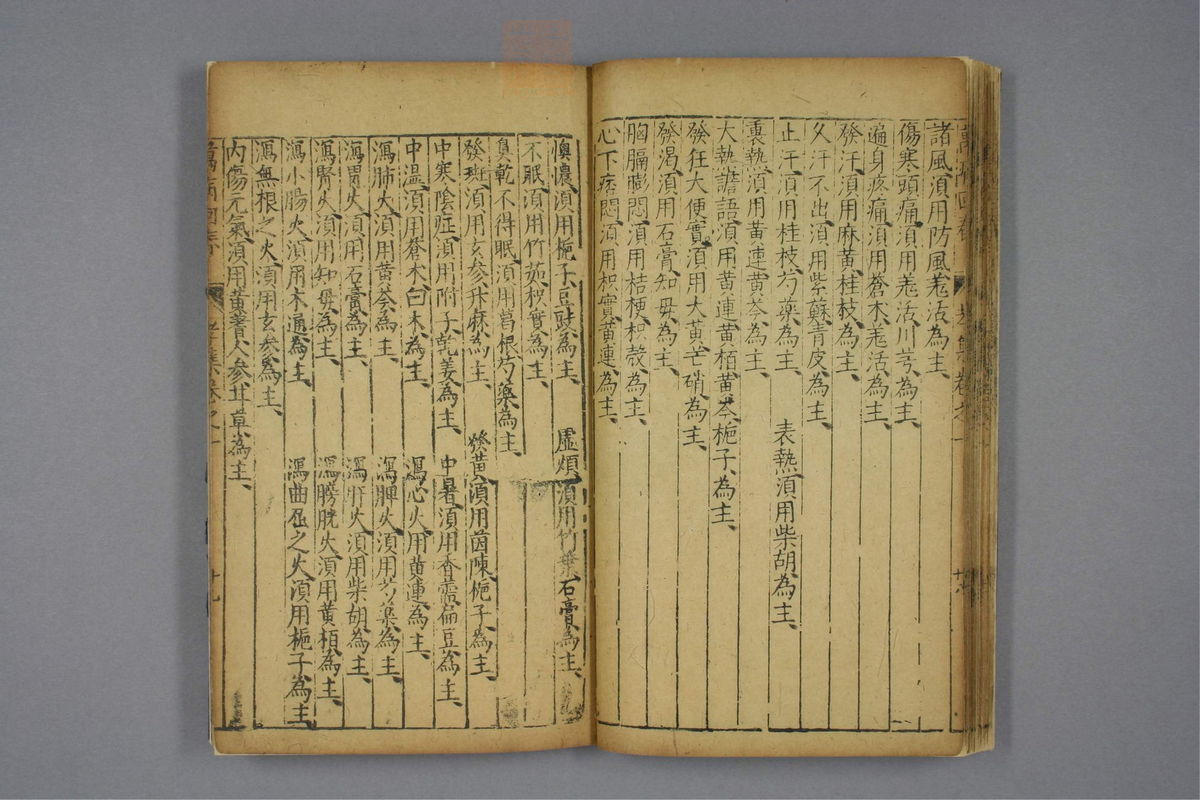 萬病回春 卷之一
諸風須用防風羗活為主、
傷寒頭痛須用羗活川芎為主、
遍身疼痛須用蒼朮羗活為主、
發汗須用麻黄桂枝為主、
久汗不出須用紫蘇青皮為主、
止汗須用桂枝芍藥為主、 表熱須用柴胡為主、
裏熱須用黄連黄芩為主、
大熱譫語須用黄連黄栢黄芩梔子為主、
發狂大便實須用大黄芒硝為主、
發渴須用石膏知毋為主、
胸膈膨悶須用桔梗枳殻為主、
心下痞悶須用枳實黄連為主、
懊憹須用梔子豆豉為主、 虛煩須用竹葉石膏為主、
不眠須用竹茹枳實為主、
鼻乾不得眠須用葛根芍藥為主、
發斑須用玄參升麻為主、 發黄須用茵陳梔子為主、
中寒陰症須用附子乾姜為主、 中暑須用香薷扁豆為主、
中濕須用蒼朮白朮為主、 瀉心火用黄連為主、
瀉肺火須用黄芩為主、 瀉脾火須用芍藥為主、
瀉胃火須用石膏為主、 瀉肝火須用柴胡為主、
瀉腎火須用知毋為主、 瀉膀胱火須用黄栢為主、
瀉小腸火須用木通為主、 瀉曲屈之火須用梔子為主、
瀉無根之火須用玄參為主、
内傷元氣須用黄蓍人參甘草為主、
萬病回春 卷之一 廿九